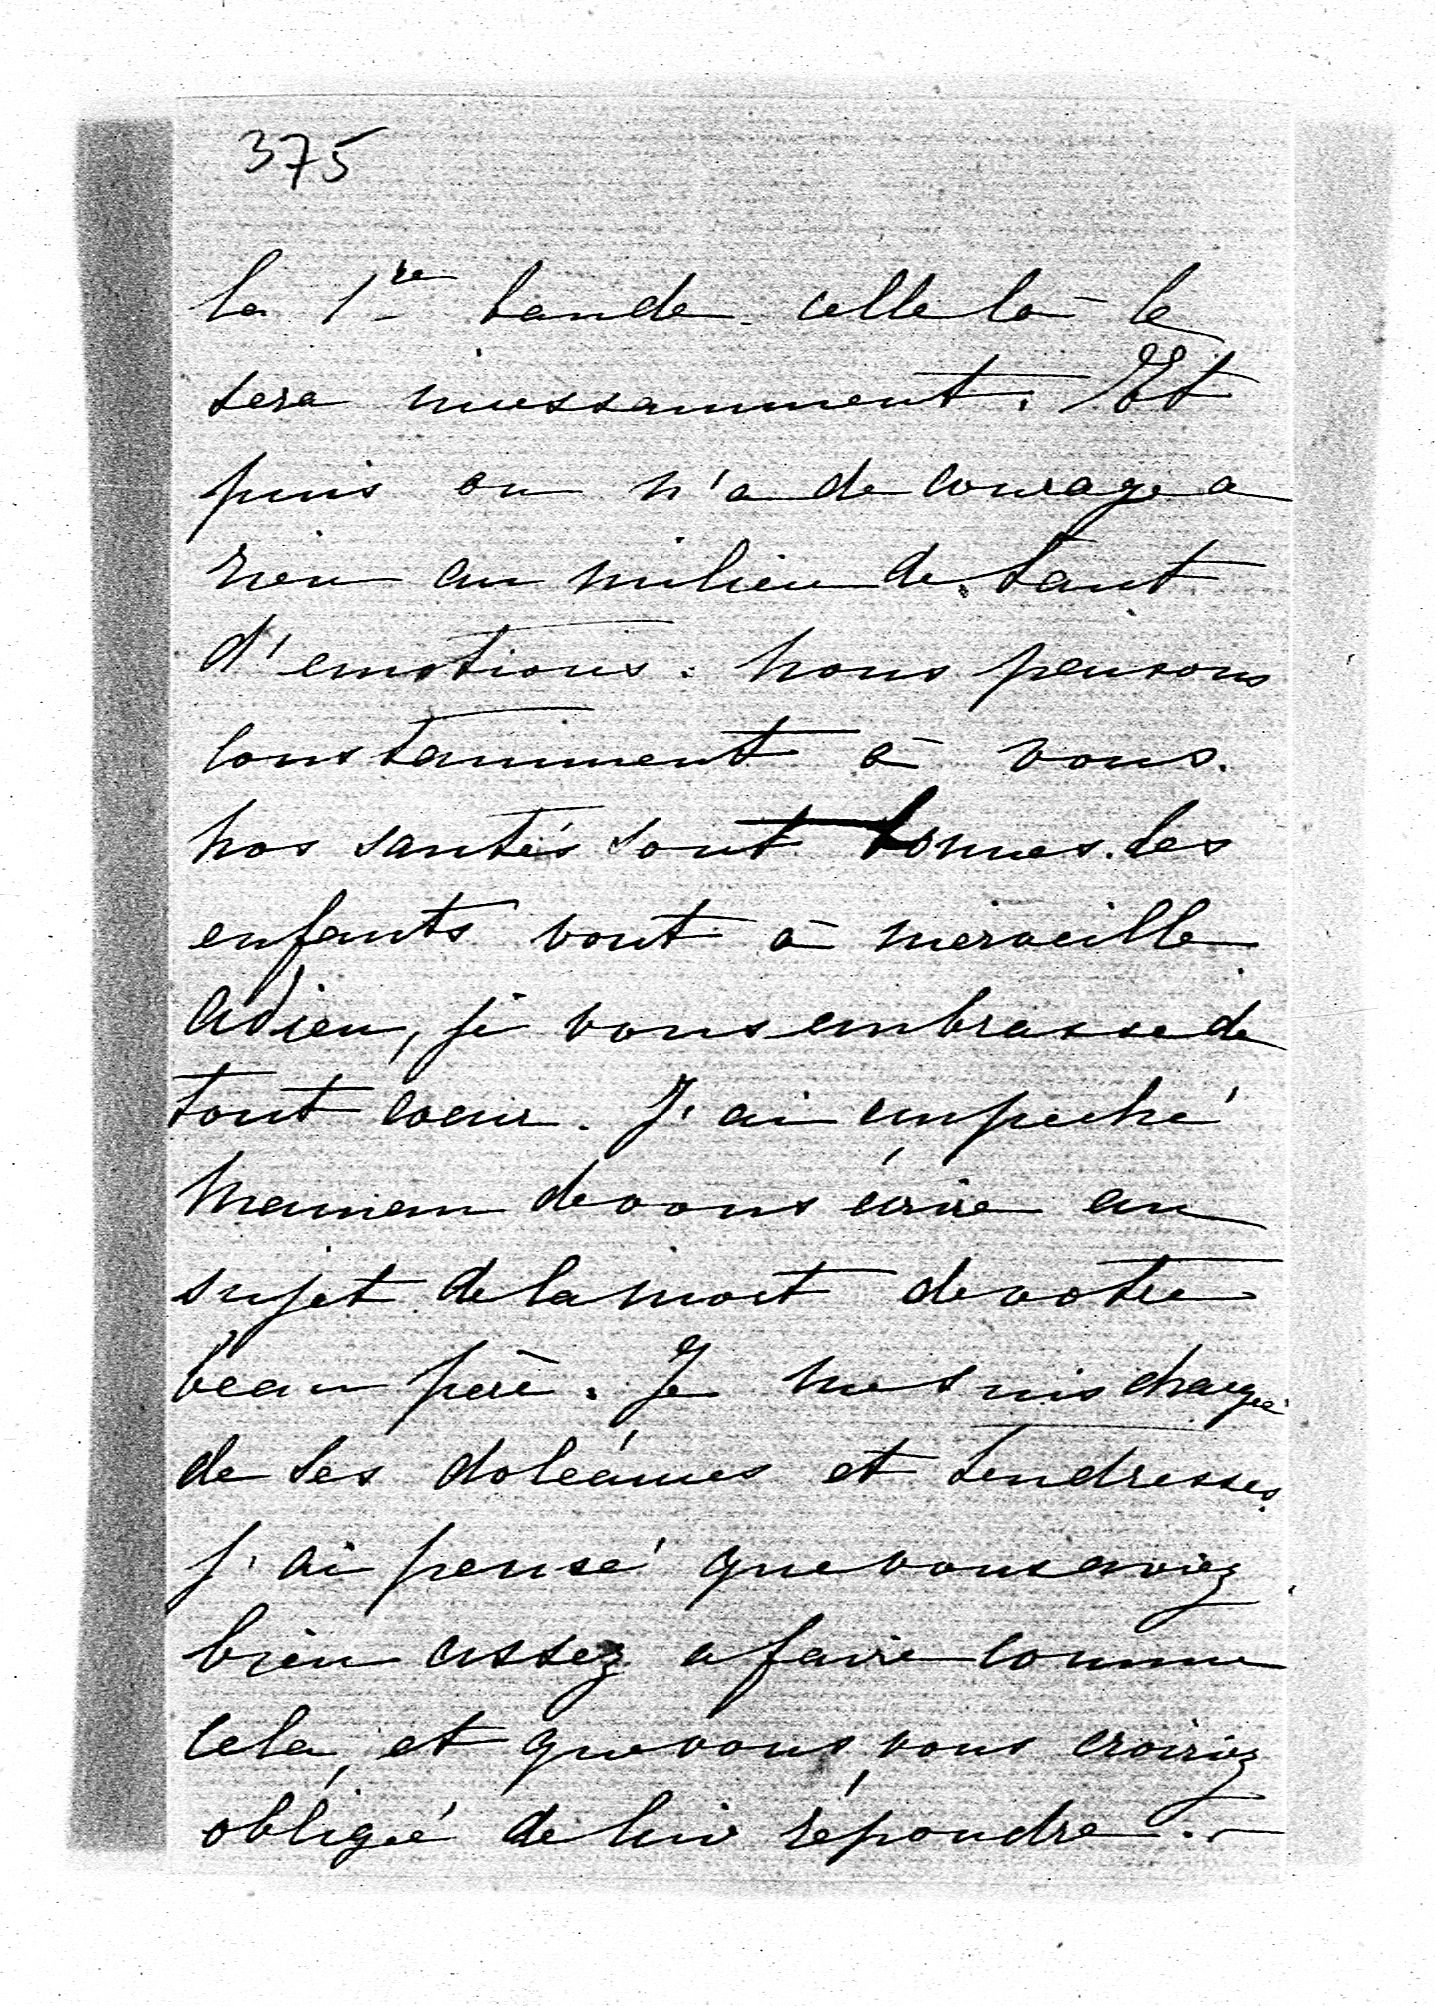 375
la 1re bande. celle là le
sera incessamment. Et
puis on n'a de courage a
rien au milieu de tant
d'emotions. nous pensons
constamment à vous.
nos santés sont bonnes. les
enfants vont à merveille.
adieu, je vous embrasse de
tout coeur. J'ai empeché
maman de vous écrire au
sujet de la mort de votre
beau père. Je me suis chargé
de ses doléances et tendresses.
j'ai pensé que vous aviez
bien assez a faire comme
cela, et que vous vous croiriez
obligé de lui répondre. -